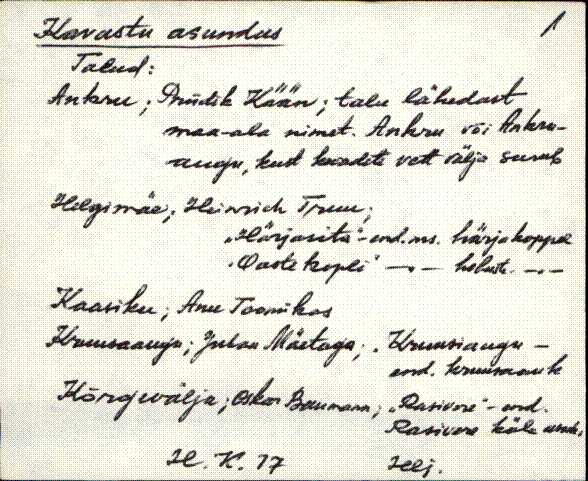 Kavastu asundus 1
Talud:
Ankru; Priidik Kään; talu lähedast
maa-ala nimet. Ankru või Ankru-
augu, kust kevadeti vett välja surub
Helgimäe; Heinrich Truu;
"Härjasita"-end. ms. härjakoppel
"Oaste kopli" —"— hobuste —"—
Kaasiku; Anu Toomikas
Kruusaaugu; Juhan Mäetaga; "Kruusiaugu -
end. kruusaauk
Kõrgevälja; Oskar Baumann; "Rasivere"- end.
Rasivere küla
H. K. 17 Helj.